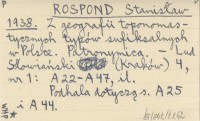 P
ROSPOND Stanisław
1938. Z geografii toponomas-
tycznych typów sufiksalnych
w Polsce. Patronymica. - Lud
Słowiański (Kraków) 4,
nr 1: A22-A47, il.
Podhala dotyczą s. A25
i A44.